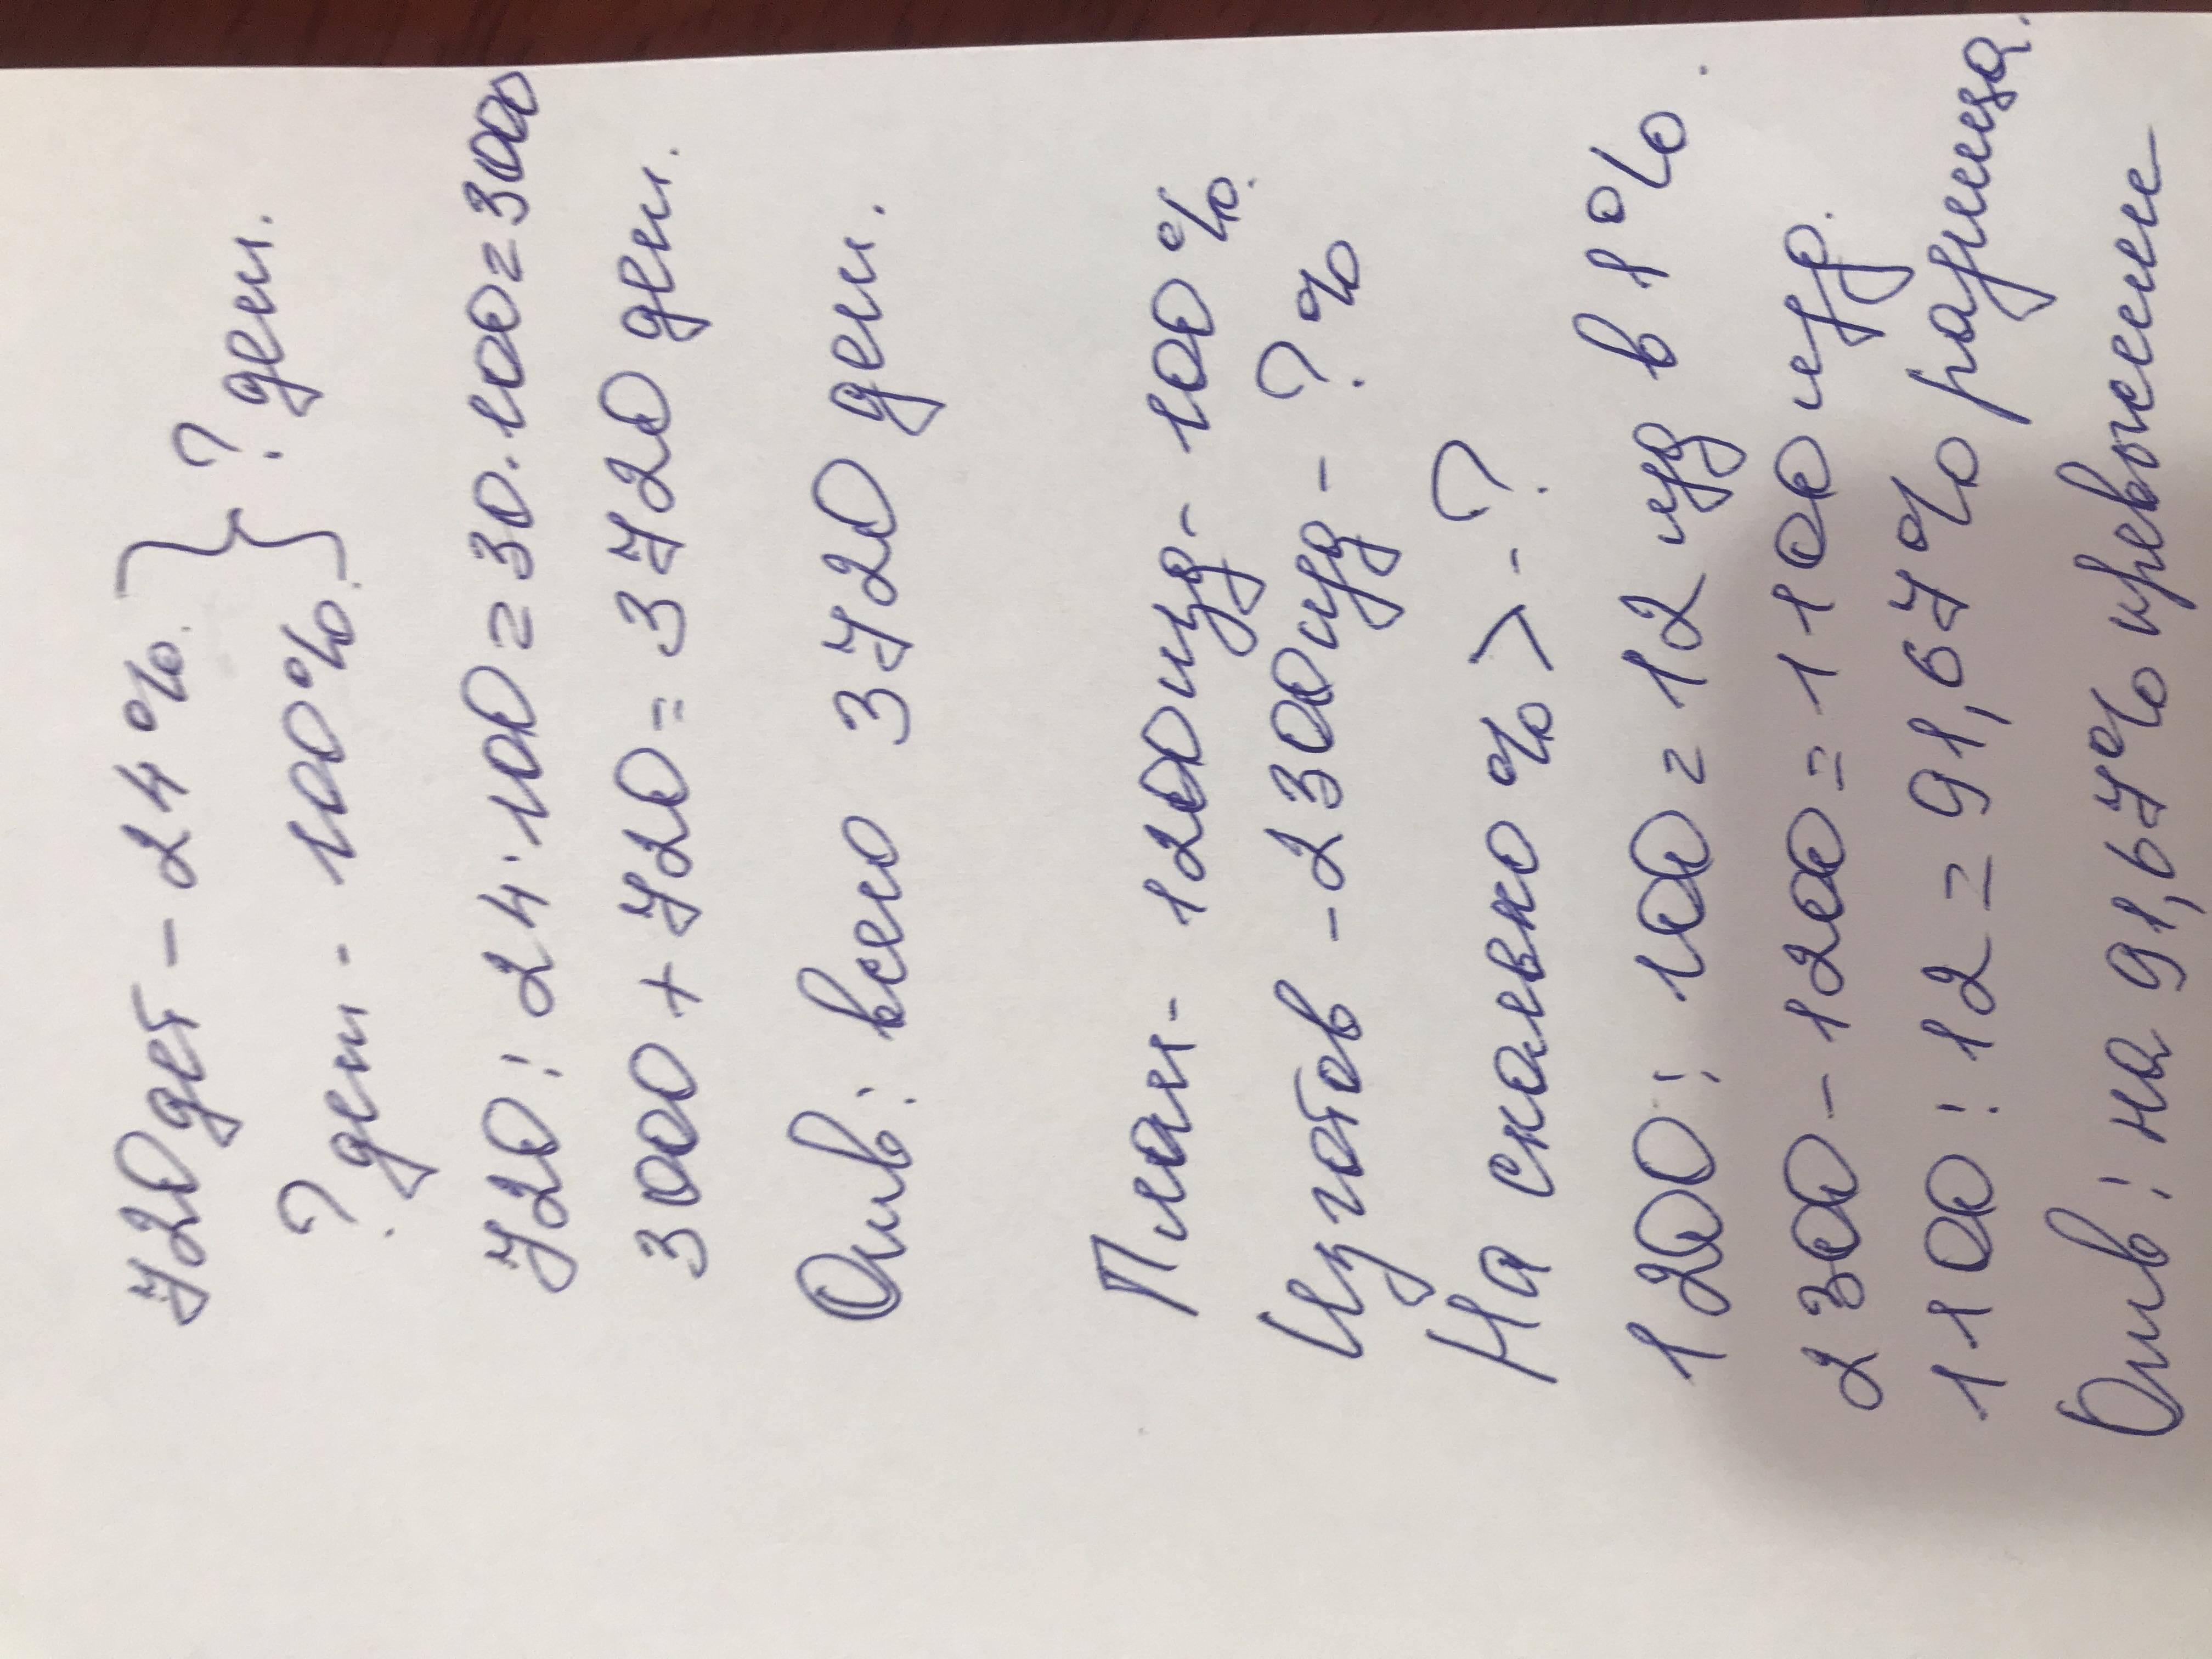 720 дет - 24%. } ? ден.
? ден. - 100%.
720 : 24 · 100 = 30 · 100 = 3000
3000 + 720 = 3720 ден.
Отв: всего 3720 ден.
План - 1200 изд - 100%.
Изготов - 2300 изд - ? %
На сколько % > - ?
1200 : 100 = 12 изд в 1%.
2300 - 1200 = 1100 изд.
1100 : 12 = 91,67% разница.
Отв: на 91,67% превышение